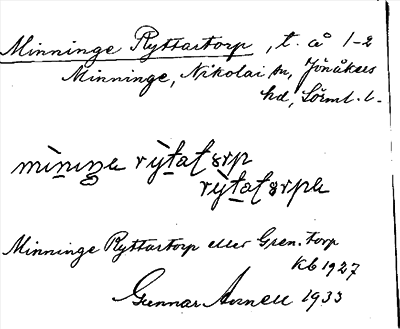 Minninge Ryttartorp, t. å 1-2
Minninge, Nikolai sn, Jönåkers
hd, Sörml. l.
mìniŋe rỳtatɷrp
rỳtatɷrpe
Minninge Ryttartorp eller Gren. torp
Kb 1927
Gunnar Arnell 1933